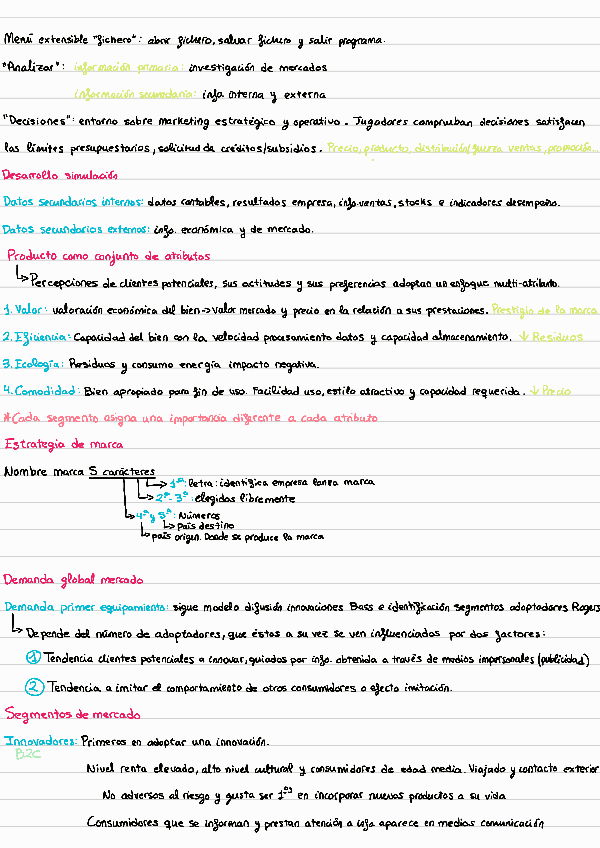 Menú extensible "fichero": abrir fichero, salvar fichero y salir programa.
"Analizar": información primaria: investigación de mercados
información secundaria: info. interna y externa
"Decisiones": entorno sobre marketing estratégico y operativo. Jugadores comprueban decisiones satisfacen
los límites presupuestarios, solicitud de créditos/subsidios. Precio, producto, distribución/fuerza ventas, promoción...
Desarrollo simulación
Datos secundarios internos: datos contables, resultados empresa, info.ventas, stocks e indicadores desempeño.
Datos secundarios externos: info. económica y de mercado.
Producto como conjunto de atributos
Percepciones de clientes potenciales, sus actitudes y sus preferencias adoptan un enfoque multi-atributo.
1. Valor: valoración económica del bien->valor mercado y precio en la relación a sus prestaciones. Prestigio de la marca
2. Eficiencia: Capacidad del bien con la velocidad procesamiento datos y capacidad almacenamiento. ↓ Residuos
3. Ecología: Residuos y consumo energía impacto negativa.
4. Comodidad: Bien apropiado para fin de uso. Facilidad uso, estilo atractivo y capacidad requerida. ↓ Precio
*Cada segmento asigna una importancia diferente a cada atributo
Estrategia de marca
Nombre marca 5 carácteres
1ª: Letra: identifica empresa lanza marca
2ª-3ª: elegidas libremente
4ª y 5ª: Números
país destino
país origen. Donde se produce la marca
Demanda global mercado
Demanda primer equipamiento: sigue modelo difusión innovaciones Bass e identificación segmentos adoptadores Rogers
Depende del número de adaptadores, que éstos a su vez se ven influenciados por dos factores:
1 Tendencia clientes potenciales a innovar, guiados por info. obtenida a través de medios impersonales (publicidad)
2 Tendencia a imitar el comportamiento de otros consumidores o efecto imitación.
Segmentos de mercado
Innovadores: Primeros en adoptar una innovación.
B2C
Nivel renta elevado, alto nivel cultural y consumidores de edad media. Viajado y contacto exterior
No adversos al riesgo y gusta ser 1os en incorporar nuevos productos a su vida
Consumidores que se informan y prestan atención a info aparece en medios comunicación